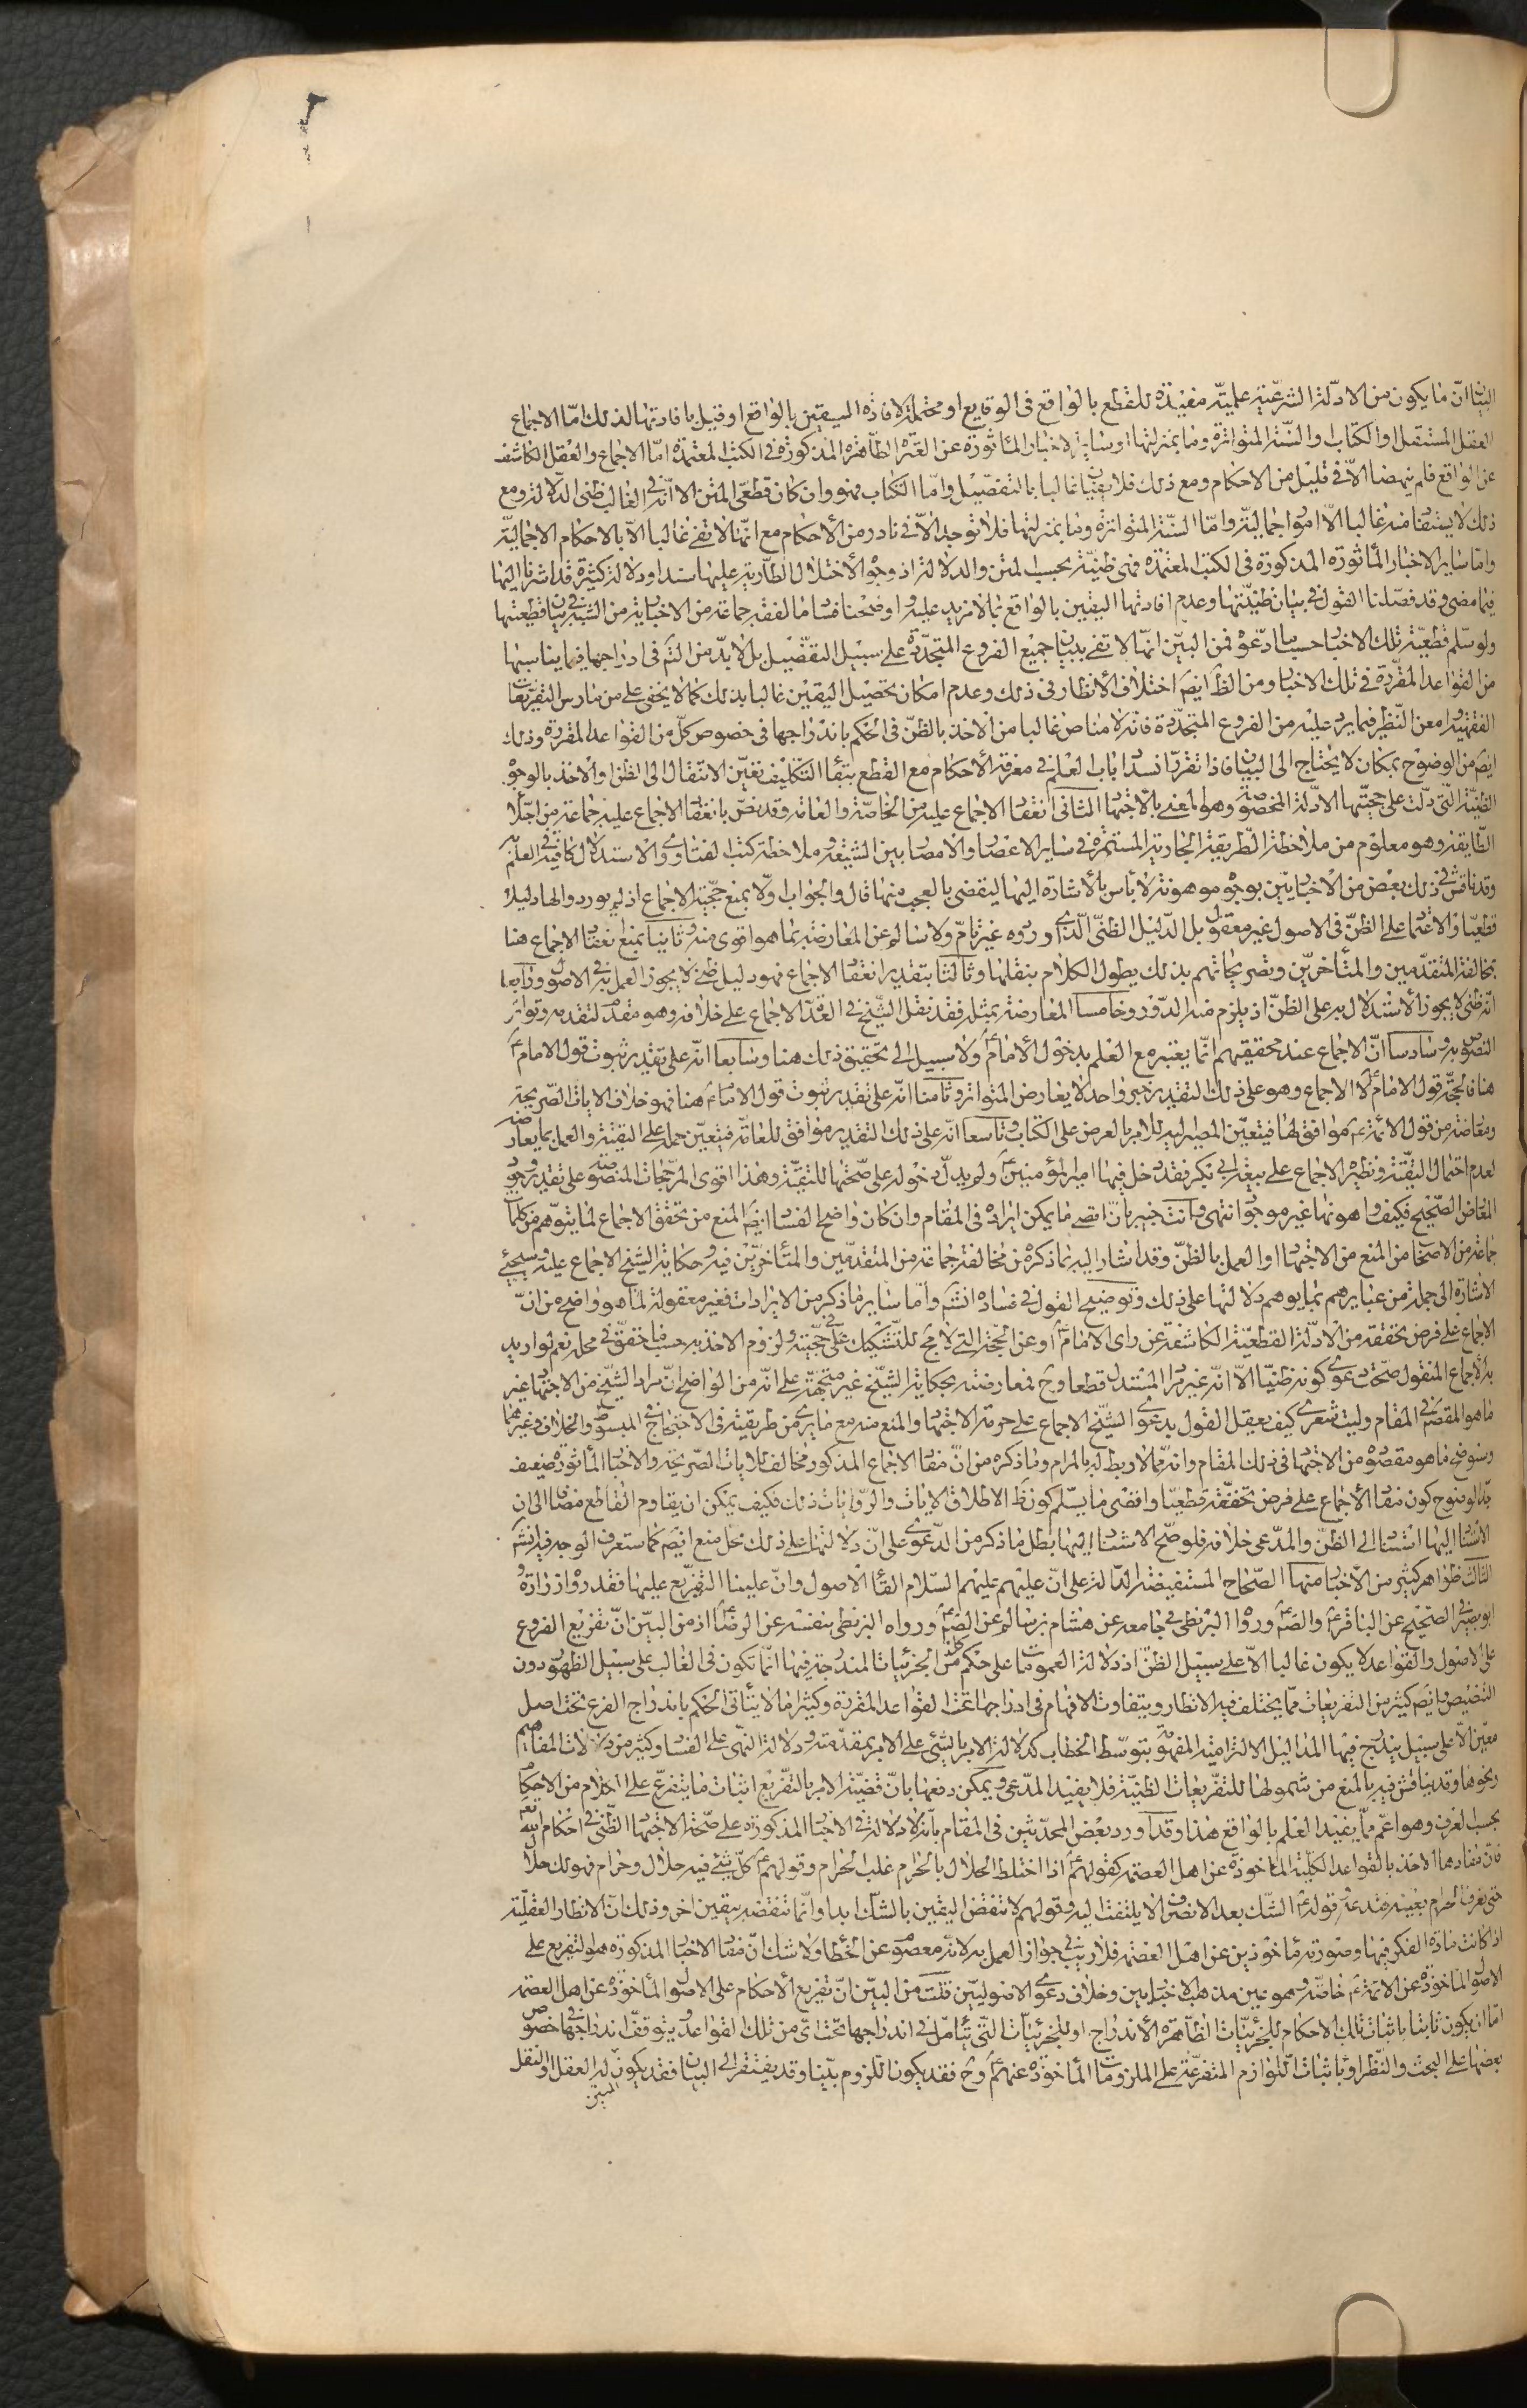 البيان انّ ما يكون من الادلّة الشرعيّة علميّة مفيدة للقطع بالواقع فى الوقايع او محتملة لافادة اليقين بالواقع او قيل بافادتها لذلك امّا الاجماع
العقل المستقل او الكتاب والسّنة المتواترة وما بمنزلتها وساير الاخبار المأثورة عن العترة الطّاهرة المذكورة فى الكتب المعتمدة امّا الاجماع والعقل الكاشف
عن الواقع فلم ينهضا الّا فى قليل من الاحكام ومع ذلك فلا يفيان غالبا بالتفصيل وامّا الكتاب فهو وان كان قطعىّ المتن الّا انّه فى الغالب ظنى الدلالة ومع
ذلك لا يستفاد منه غالبا الّا امور اجماليّة وامّا السنّة المتواترة وما بمنزلتها فلا توجد الّا فى نادر من الأحكام مع انّها لا تفى غالبا الّا بالاحكام الاجماليّة
وامّا ساير الاخبار المأثورة المذكورة فى الكتب المعتمدة فهى ظنيّة بحسب المتن والدلالة اذ وجوه الأختلال الطّارية عليها سندا ودلالة كثيرة قد اشرنا اليها
فيما مضى وقد فصّلنا القول فى بيان ظنيّتها وعدم افادتها اليقين بالواقع بما لا مزيد عليه واوضحنا فساد ما لفقه جماعة من الاخباريّة من الشبه فى بيان قطعيّتها
ولو سلّم قطعيّة تلك الاخبار حسبما ادّعوه فمن البيّن انّها لا تفى ببيان جميع الفروع المتجدّدة على سبيل التفصيل بل لا بدّ من التأمّ فى ادراجها فيما يناسبها
من القواعد المقرّرة فى تلك الاخبار ومن الظ ايضا اختلاف الأنظار فى ذلك وعدم امكان تحصيل اليقين غالبا بذلك كما لا يخفى على من مارس التفريعات
الفقهيّة وامعن النّظر فيما يرد عليه من الفروع المتجدّدة فانّه لا مناص غالبا من الأخذ بالظنّ فى الحكم باندراجها فى خصوص كلّ من القواعد المقرّرة وذلك
ايضا من الوضوح بمكان لا يحتاج الى البيان فاذا تقرّر انسداد باب العلم فى معرفة الأحكام مع القطع ببقاء التكليف تعيّن الانتقال الى الظن والأخذ بالوجوه
الظنيّة الّتى دلّت على حجيّتها الادلّة المخصوصة وهو المعنى بالأجتهاد الثانى انعقاد الاجماع عليه من الخاصّة والعامّة وقد نصّ بانعقاد الاجماع عليه جماعة من اجلّاء
الطّايفة وهو معلوم من ملاحظة الطّريقة الجارية المستمرّة فى ساير الاعصار والامصار بين الشيعة وملاحظة كتب الفتاوى والاستدلال كافية فى العلم به
وقد ناقش فى ذلك بعض من الأخباريّين بوجوه موهونة لا بأس بالأشارة اليها ليقضى بالعجب منها قال والجواب اولا بمنع حجّية الاجماع اذ لم يوردوا لها دليلا
قطعيّا والاعتماد على الظنّ فى الاصول غير معقول بل الدّليل الظنّى الّذى اوردوه غير تامّ ولا سالم عن المعارضة بما هو اقوى منه وثانيا بمنع انعقاد الاجماع هنا
بمخالفة المتقدّمين والمتأخرين وتصريحاتهم بذلك يطول الكلام بنقلها وثالثا بتقدير انعقاد الاجماع فهو دليل ظنى لا يجوز العمل به فى الاصول ورابعا
انّه ظنى لا يجوز الأستدلال به على الظنّ اذ يلزم منه الدّور وخامسا المعارضة بمثله فقد نقل الشّيخ فى العدّة الاجماع على خلافه وهو مقدّم لتقدمه وتواتر
النصوص به وسادسا انّ الاجماع عند محقّقيهم انّما يعتبر مع العلم بدخول الأمام ولا سبيل الى تحقيق ذلك هنا وسابعا انّه على تقدير ثبوت قول الامام
هنا فالحجّة قول الامام لا الاجماع وهو على ذلك التقدير خبر واحد لا يعارض المتواتر وثامنا انّه على تقدير ثبوت قول الامام هنا فهو خلاف الايات الصّريحة
ومعارضه من قول الائمة موافق لها فيتعيّن المصير اليه للامر بالعرض على الكتاب وتاسعا انّه على ذلك التقدير موافق للعامّة فيتعيّن حمله على التقيّة والعمل بما يعارضه
لعدم احتمال التقيّة ونظيره الاجماع على بيعة ابى بكر فقد دخل فيها امير المؤمنين ولم يدلّ دخوله على صحّتها للتقيّة وهذا اقوى المرجّحات المنصوصة على تقدير وجود
المعارض الصّحيح فكيف وهو هنا غير موجود انتهى وانت خبير بانّ اقصى ما يمكن ايراده فى المقام وان كان واضح الفساد ايضا المنع من تحقّق الاجماع لما يتوهّم من كلمات
جماعة من الاصحاب من المنع من الاجتهاد او العمل بالظنّ وقد اشار اليه بما ذكره من مخالفة جماعة من المتقدّمين والمتأخرين فيه وحكاية الشّيخ الاجماع عليه وسيجئ
الاشارة الى جملة من عبايرهم بما يوهم دلالتها على ذلك وتوضيح القول فى فساده انشم وامّا ساير ما ذكر من الايرادات فغير معقولة لما هو واضح من انّ
الاجماع على فرض تحقّقه من الأدلّة القطعيّة الكاشفة عن راى الامام او عن الحجّة التى لا مجال للتّشكيك فى حجّيته ولزوم الاخذ به حسبما حقّق فى محله نعم لو اريد
به الاجماع المنقول صحّت دعوى كونه ظنيّا الّا انّه غير مراد المستدل قطعا وح فمعارضته بحكاية الشّيخ غير متجهة على انّه من الواضح انّ مراد الشيخ من الاجتهاد غير
ما هو المقصود فى المقام وليت شعرى كيف يعقل القول بدعوى الشّيخ الاجماع على حرمة الاجتهاد والمنع منه مع ما يرى من طريقته فى الاحتجاج فى المبسوط والخلاف وغيرهما
وسنوضح ما هو مقصوده من الاجتهاد فى ذلك المقام وانّه ممّا لا ربط له بالمرام وما ذكره من انّ مفاد الاجماع المذكور مخالف للايات الصّريحة والاخبار المأثورة ضعيف
بل لوضوح كون مفاد الأجماع على فرض تحقّقه قطعيّا واقصى ما يسلّم كون ظ الاطلاق الايات والرّوايات ذلك فكيف يمكن ان يقاوم القاطع مضافا الى ان
الأستناد اليها استناد الى الظنّ والمدّعى خلافه فلو صحّ الاستناد اليها بطل ما ذكر من الدّعوى على انّ دلالتها على ذلك محل منع ايضا كما ستعرف الوجه فيه انشم
الثالث ظواهر كثير من الأخبار منها الصّحاح المستفيضة الدّالة على انّ عليهم عليهم السّلام القاء الأصول وانّ علينا التّفريع عليها فقد رواه زرارة و
ابو بصير فى الصّحيح عن الباقر والصّ ورواه البزنطى فى جامعه عن هشام بن سالم عن الصّ ورواه البزنطى بنفسه عن الرضا اذ من البيّن انّ تفريع الفروع
على الأصول والقواعد لا يكون غالبا الّا على سبيل الظنّ اذ دلالة العمومات على حكم كل من الجزئيات المندرجة فيها انّما تكون فى الغالب على سبيل الظهور دون
التنصيص وايضا كثير من التفريعات ممّا يختلف فيه الانظار ويتفاوت الافهام فى ادراجها تحت القواعد المقرّرة وكثيرا ما لا يتأتّى الحكم باندراج الفرع تحت اصل
معيّن الّا على سبيل يندرج فيها المداليل الالتزاميّة المفهومة بتوسّط الخطاب كدلالة الامر بالشّئ على الامر بمقدّمته ودلالة النهى على الفساد وكثير من دلالات المفاهيم
ونحوها وقد يناقش فيه بالمنع من شمولها للتفريعات الظنيّة فلا يفيد المدّعى ويمكن دفعها بانّ قضيّة الامر بالتّفريع اثبات ما يتفرّع على الكلام من الاحكام
بحسب العرف وهو اعمّ ممّا يفيد العلم بالواقع هذا وقد اورد بعض المحدثين فى المقام بانّه لا دلالة فى الاخبار المذكورة على صحّة الاجتهاد الظّنى فى احكام الله تعم
فانّ مفادها الاخذ بالقواعد الكلّية المأخوذة عن اهل العصمة كقولهم اذا اختلط الحلال بالحرام غلب الحرام وقولهم كلّ شئ فيه حلال وحرام فهو لك حلال
حتى تعرف الحرام بعينه فتدعه وقوله الشّك بعد الانصراف لا يلتفت اليه وقولهم لا تنقض اليقين بالشّك ابدا وانّما تنقضه بيقين اخر وذلك انّ الانظار العقليّة
اذا كانت مادّة الفكر فيها وصورته مأخوذين عن اهل العصمة فلا ريب فى جواز العمل به لانّه معصوم عن الخطأ ولا شك انّ مفاد الاخبار المذكورة هو التفريع على
الاصول المأخوذة عن الائمة خاصّة وهو عين مذهب الاخباريين وخلاف دعوى الاصوليّين قلت من البيّن انّ تفريع الأحكام على الاصول المأخوذة عن اهل العصمة
امّا ان يكون ثابتا باثبات تلك الاحكام للجزئيّات الظّاهرة الاندراج او للجزئيّات الّتى يتأمّل فى اندراجها تحت اىّ من تلك القواعد ويتوقّف اندراجها فى خصوص
بعضها على البحث والنّظر او باثبات اللّوازم المتفرّعة على الملزومات المأخوذة عنهم وح فقد يكون اللّزوم بيّنا وقد يفتقر الى البيان فقد يكون له العقل او النقل
المبيّن